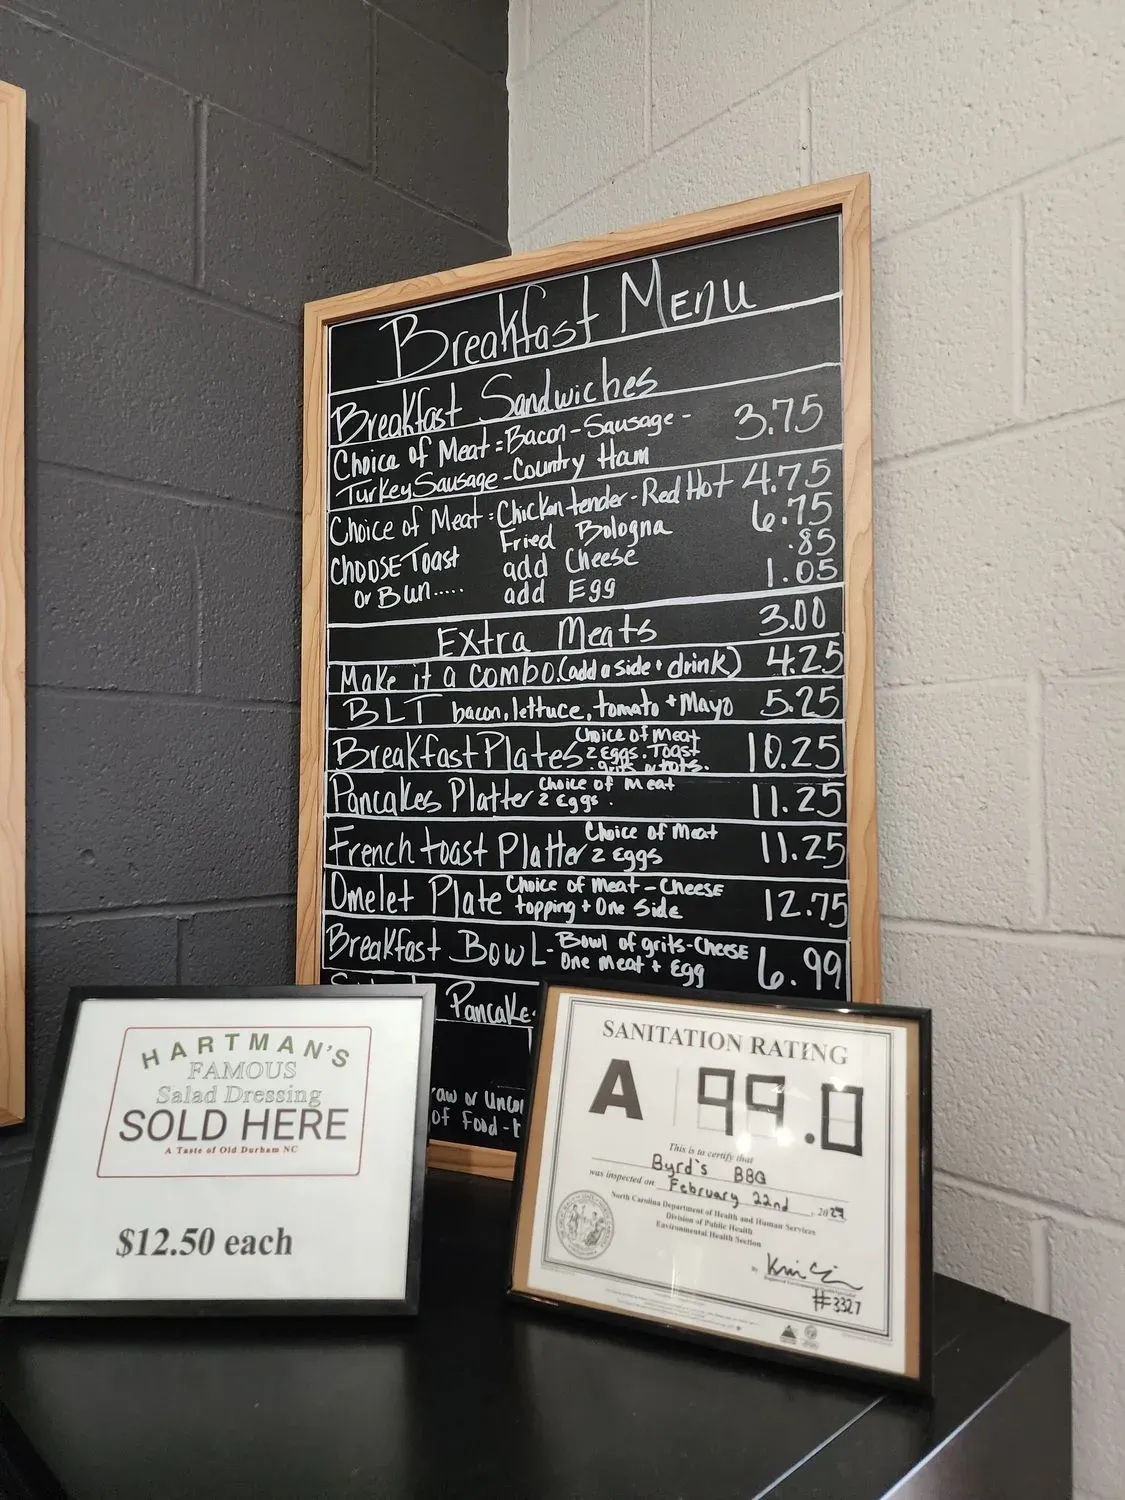 Breakfast Menu
Breakfast Sandwiches
Choice of Meat = Bacon - Sausage - 3.75
Turkey Sausage - Country Ham
Choice of Meat : Chicken tender - Red Hot 4.75
Fried Bologna 6.75
CHOOSE Toast add Cheese .85
or Bun..... add Egg 1.05
Extra Meats 3.00
Make it a combo. (add a side + drink) 4.25
BLT bacon, lettuce, tomato + Mayo 5.25
Breakfast Plates Choice of meat 10.25
2 Eggs. Toast
grits or
Pancakes Platter Choice of Meat 11.25
2 Eggs.
French toast Platter Choice of Meat 11.25
2 Eggs
Omelet Plate Choice of meat - Cheese 12.75
topping + One Side
Breakfast Bowl - Bowl of grits - Cheese 6.99
One Meat + Egg
Pancake
of Food -
HARTMAN'S
FAMOUS
Salad Dressing
SOLD HERE
A Taste of Old Durham NC
$12.50 each
SANITATION RATING
A 99.0
This is to certify that
Byrd's BBQ
was inspected on February 22nd, 20
North Carolina Department of Health and Human Services
Division of Public Health
Environmental Health Section
By
#3327